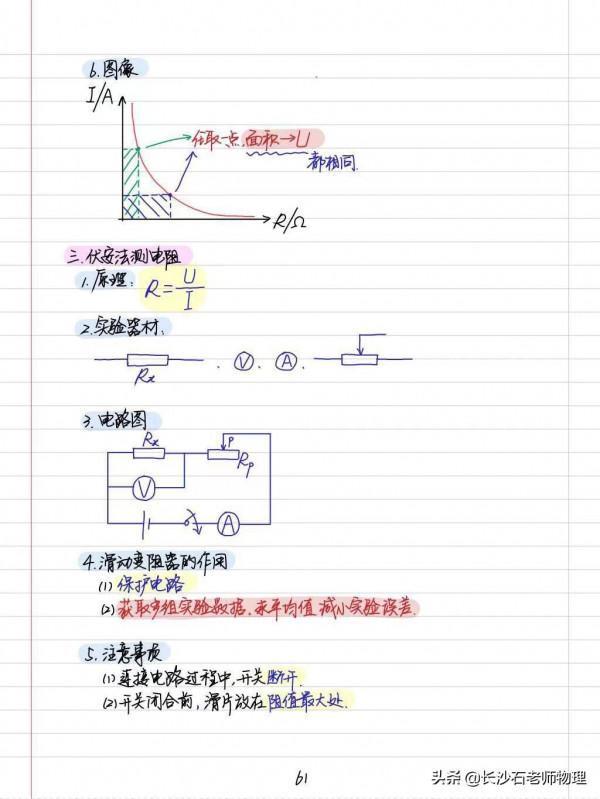 6.图像
I/A
任取一点,面积→U
都相同.
R/Ω
三.伏安法测电阻
1.原理: R=U/I
2.实验器材:
Rx . V . A .
3.电路图
Rx P
Rp
V
A
4.滑动变阻器的作用
(1)保护电路
(2)获取多组实验数据,求平均值减小实验误差.
5.注意事项
(1)连接电路过程中,开关断开.
(2)开关闭合前,滑片放在阻值最大处.
61
头条 @长沙石老师物理